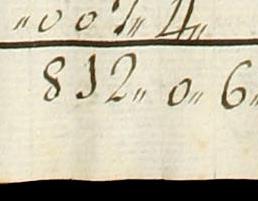 „ 0 0 1 „ 4 „
812 „ 0 „ 6 „